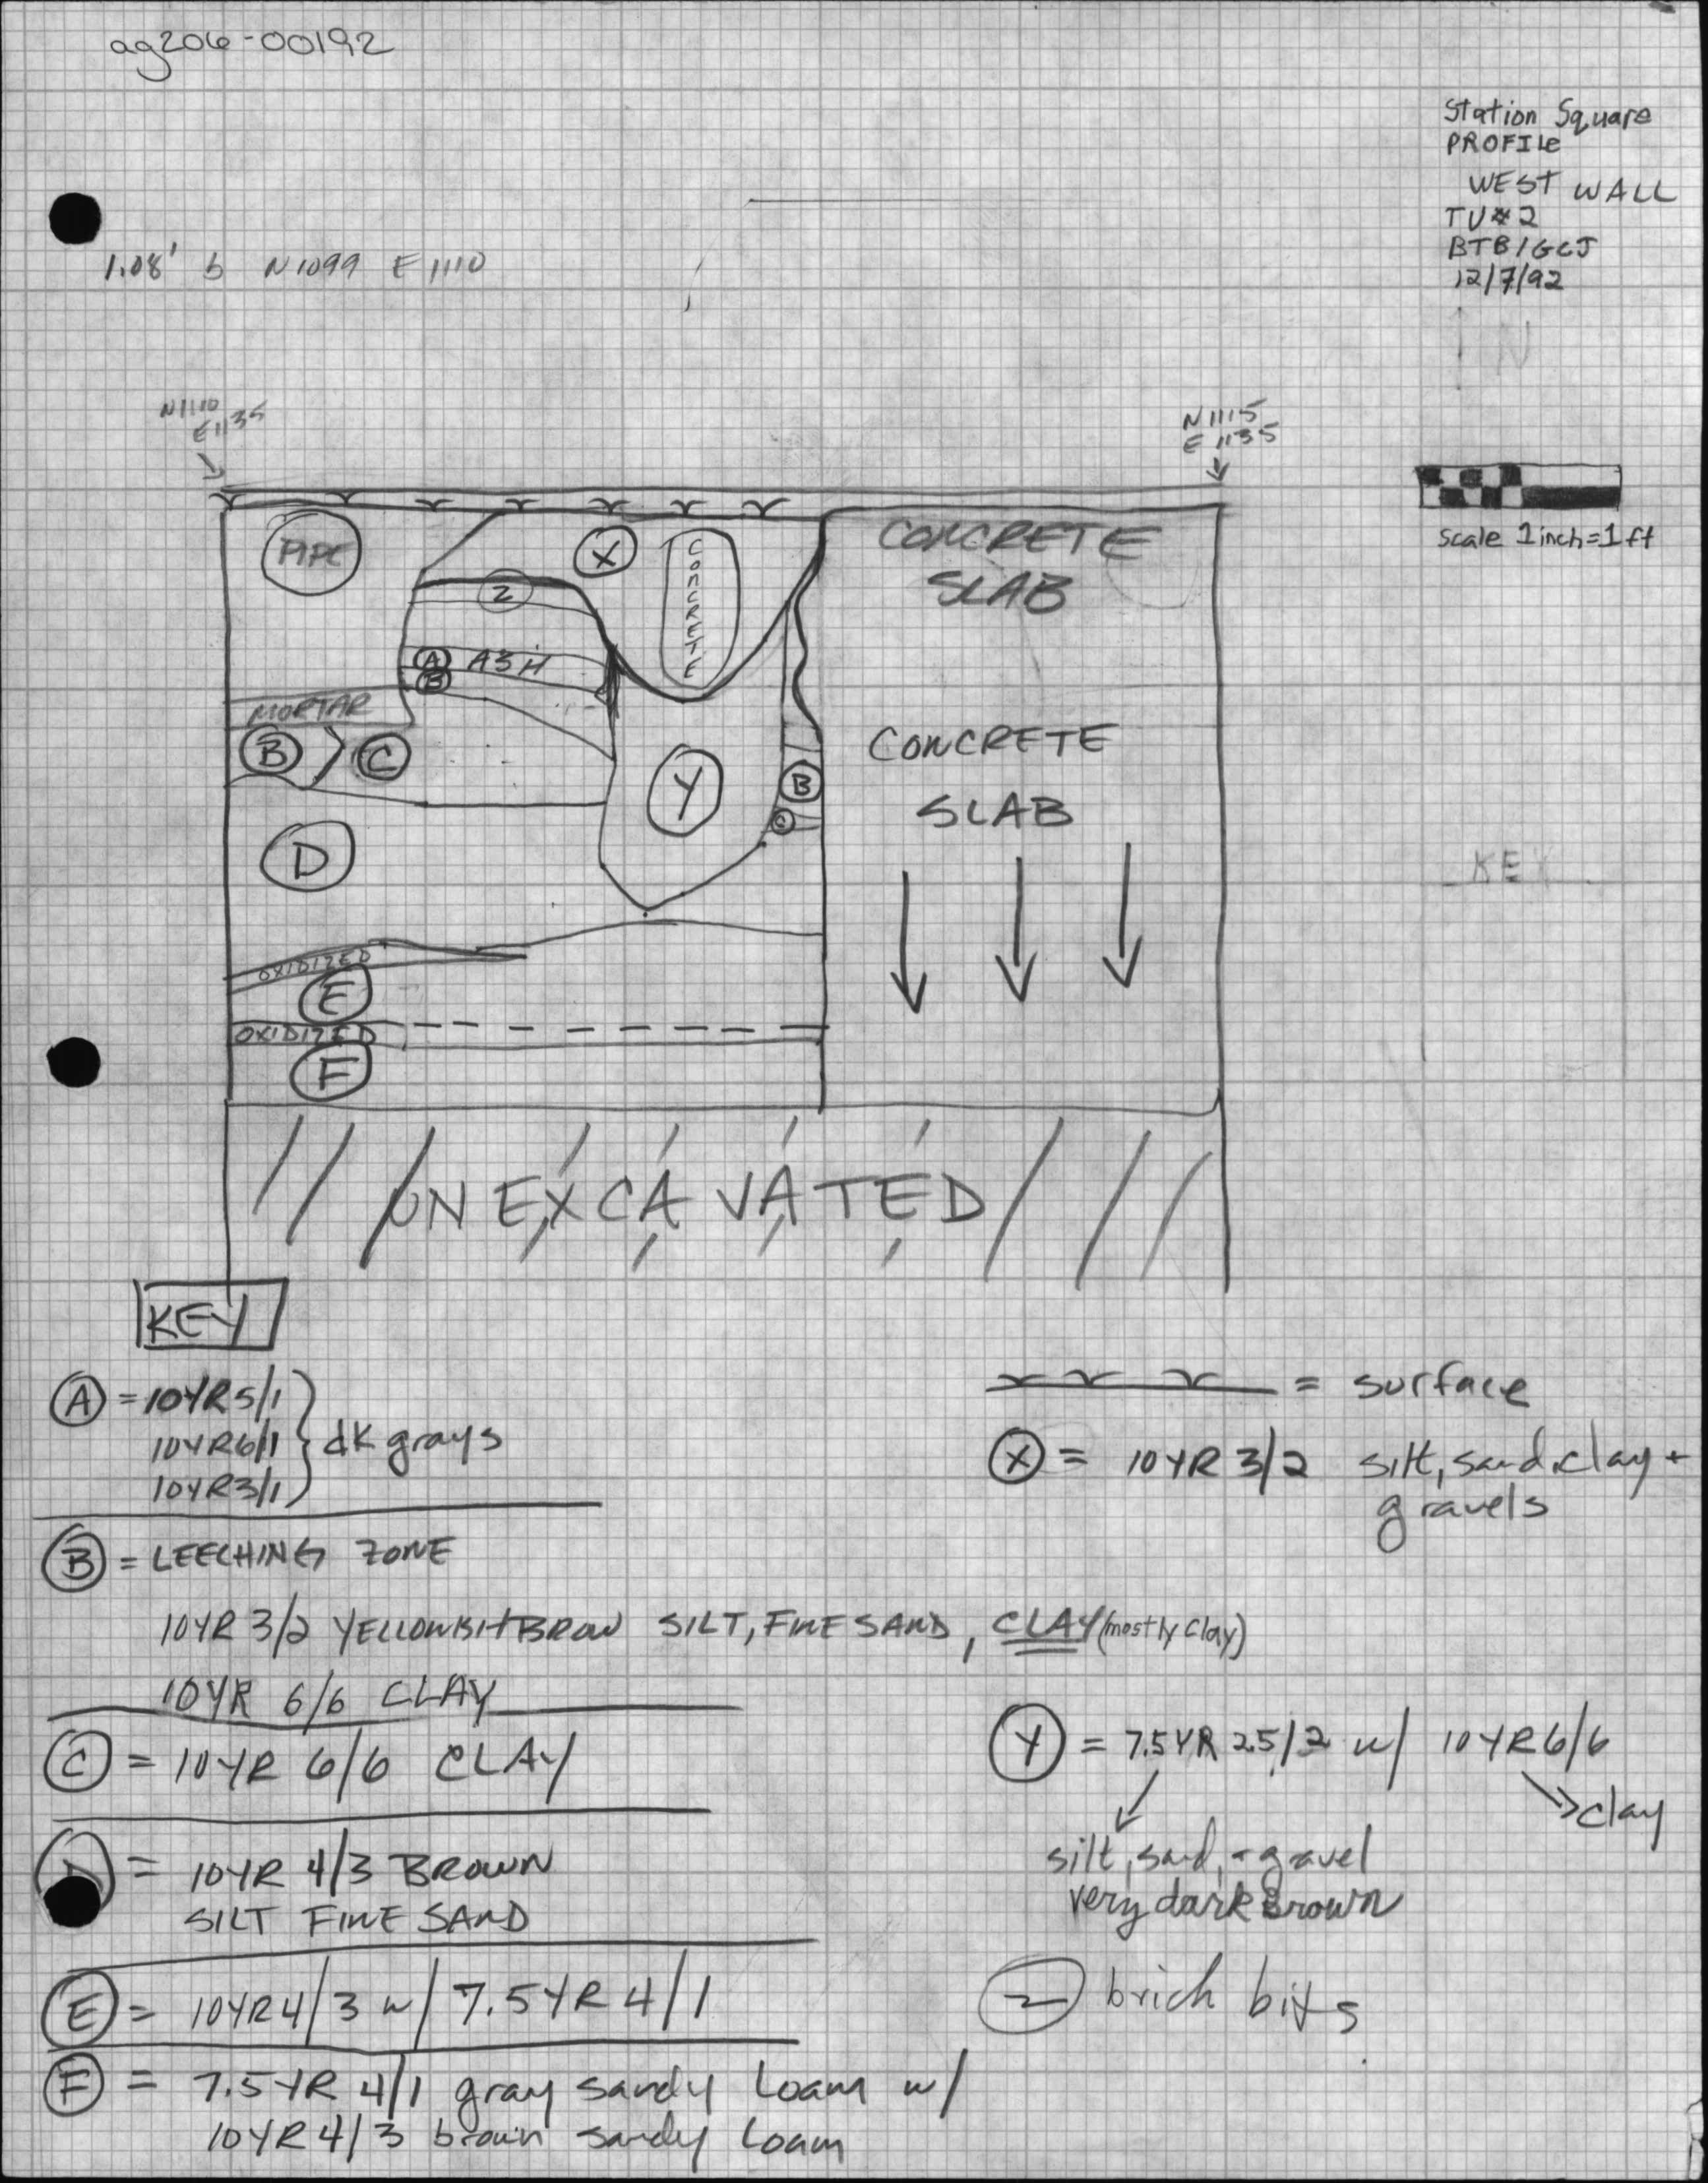 ag206-00192
Station Square
PROFILE
WEST WALL
TU#2
BTB/GCJ
12/7/92
N
1.08' b N1099 E1110
N1110
E1135
N1115
E 1135
scale 1inch=1ft
PIPE
X
CONCRETE
CONCRETE
SLAB
Z
A ASH
B
MORTAR
B > C
Y
B
C
CONCRETE
SLAB
D
KEY
OXIDIZED
E
OXIDIZED
F
UNEXCAVATED
KEY
A = 10YR5/1
10YR6/1 } dk grays
10YR3/1
B = LEECHING ZONE
10YR 3/2 YELLOWISH BROW SILT, FINE SAND, CLAY (mostly clay)
10YR 6/6 CLAY
C = 10YR 6/6 CLAY
D = 10YR 4/3 BROWN
SILT FINE SAND
E = 10YR4/3 w/ 7.5YR 4/1
F = 7.5YR 4/1 gray sandy Loam w/
10YR4/3 brown sandy Loam
= surface
X = 10YR 3/2 silt, sand, clay +
gravels
Y = 7.5YR 2.5/2 w/ 10YR6/6
clay
silt, sand, + gravel
very dark brown
Z brick bits